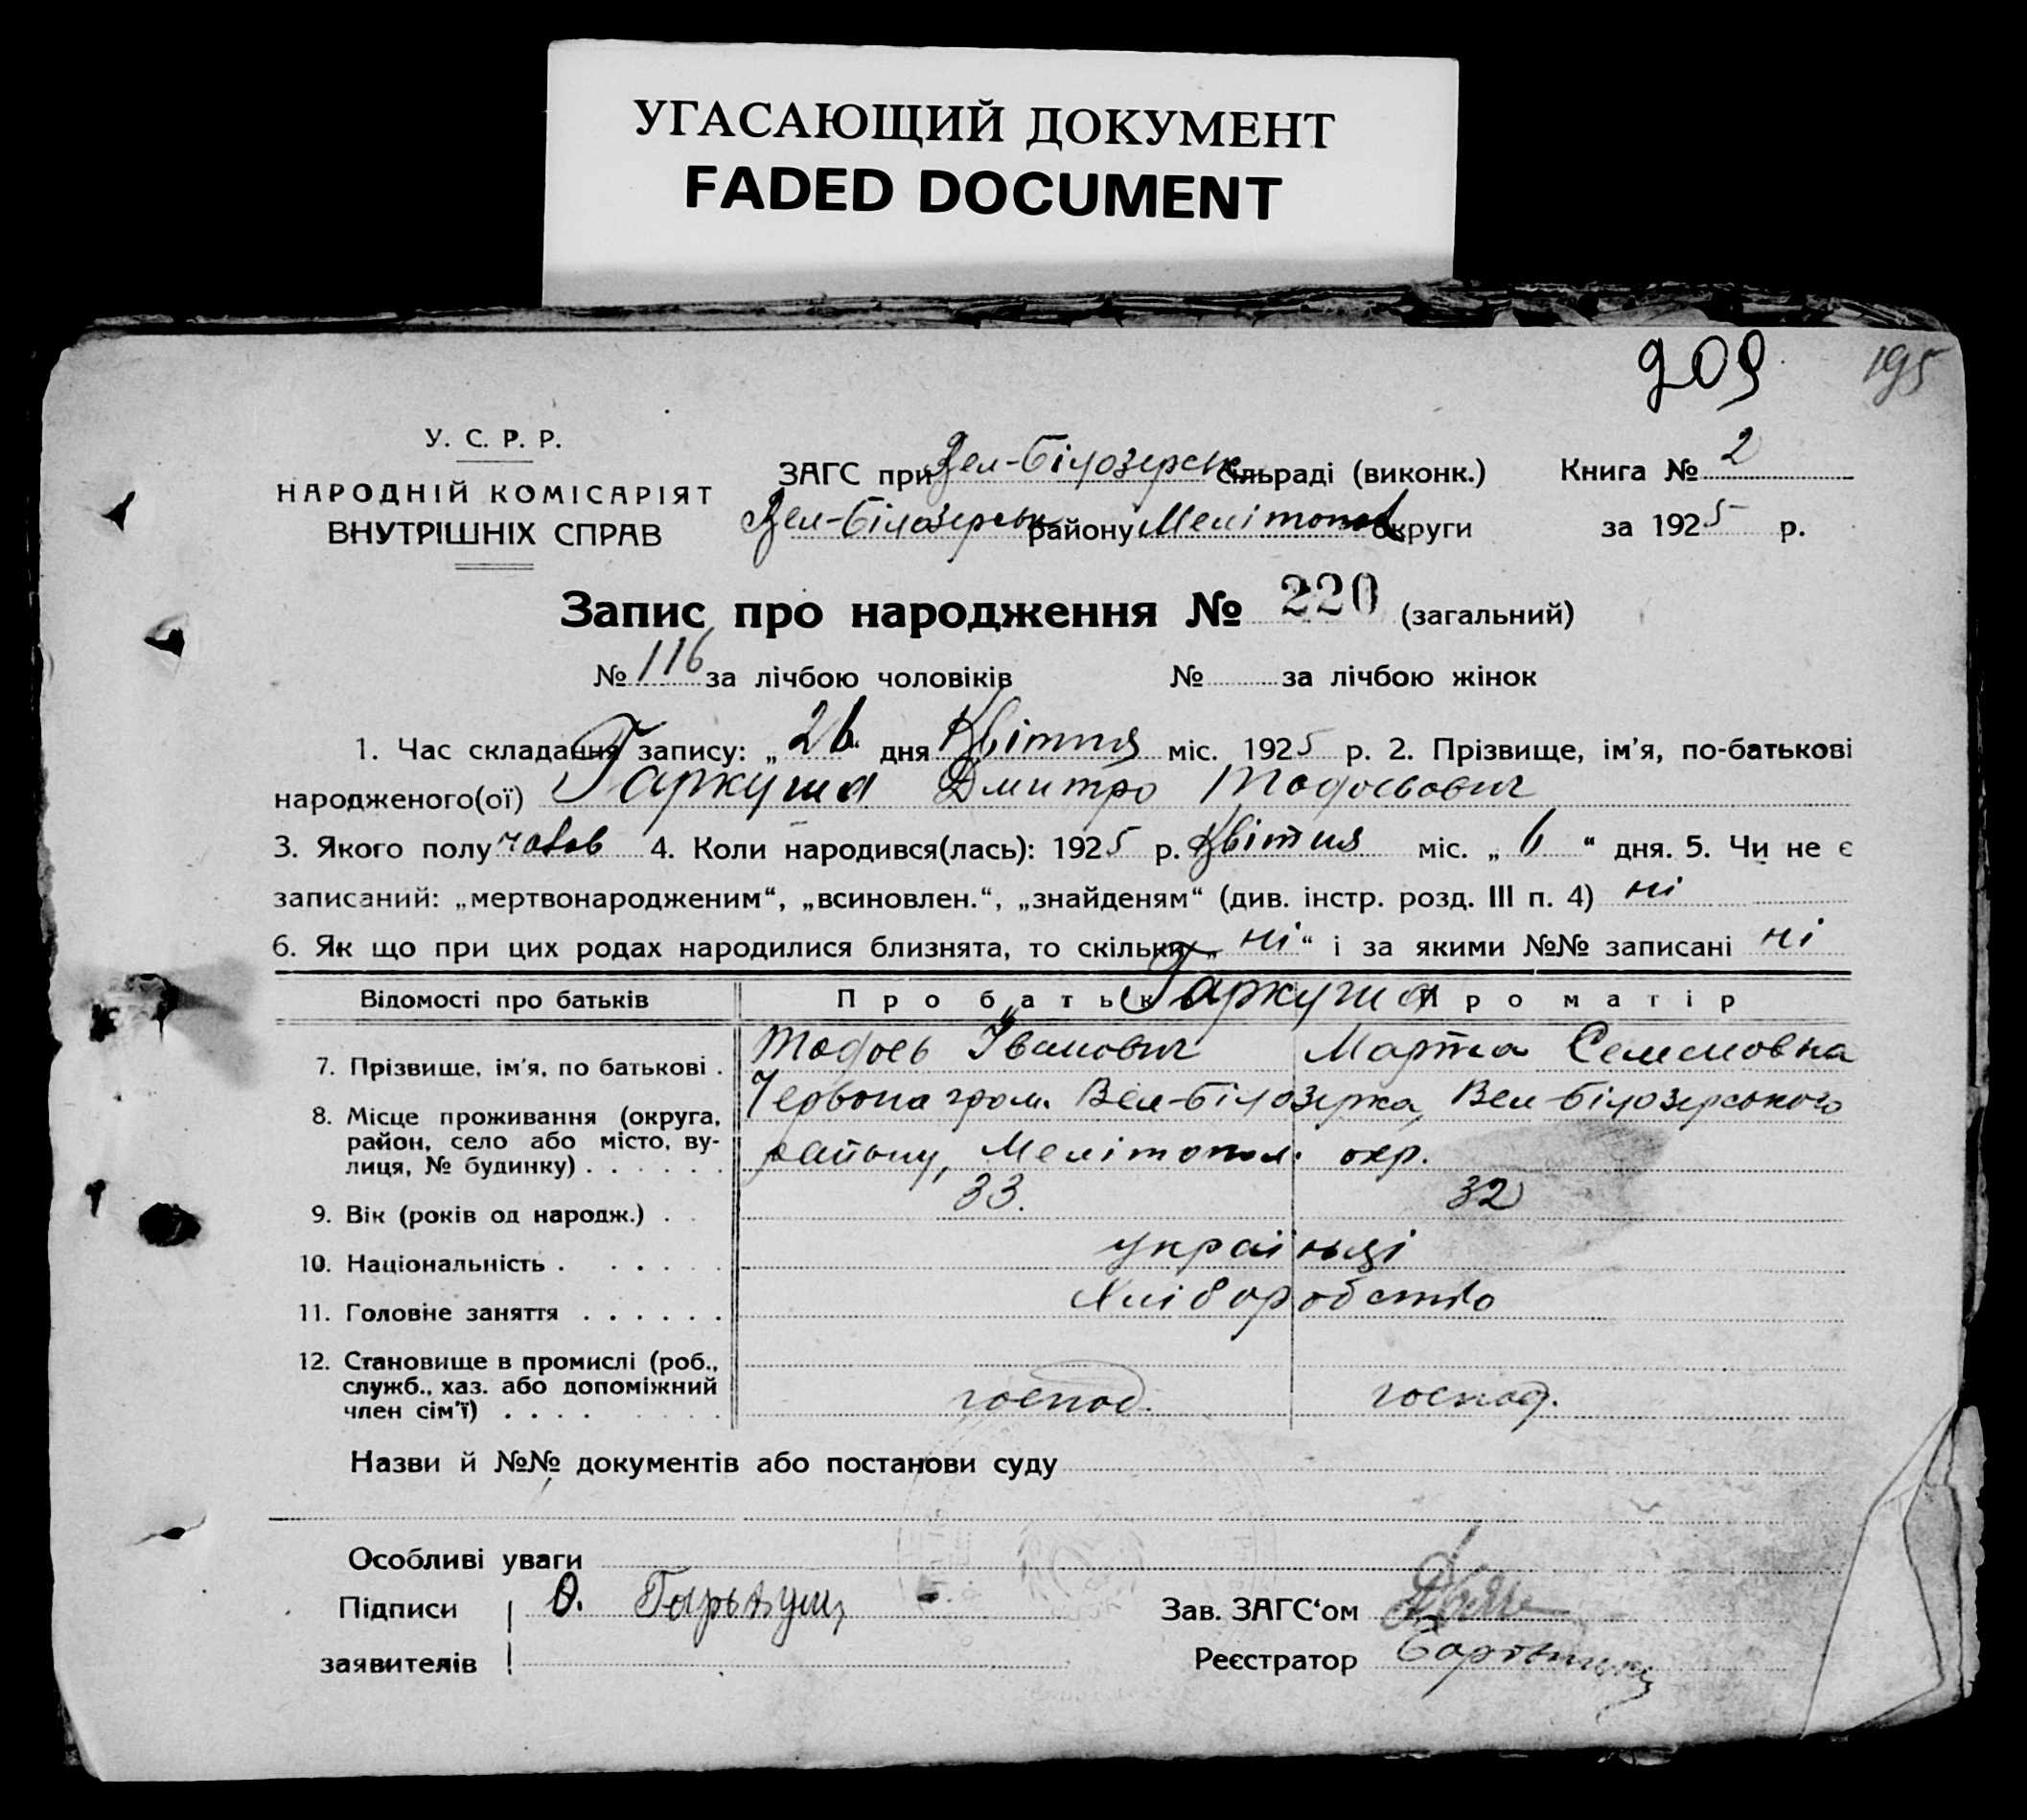 УГАСАЮЩИЙ ДОКУМЕНТ
FADED DOCUMENT
209 195
У. С. Р. Р.
НАРОДНІЙ КОМІСАРІЯТ
ВНУТРІШНІХ СПРАВ
ЗАГС при Вел-Білозерськ сільраді (виконк.) Книга № 2
Вел-Білозерськ району Мелітопол округи за 1925 р.
Запис про народження № 220 (загальний)
№ 116 за лічбою чоловіків № за лічбою жінок
1. Час складання запису: „26“ дня Квітня міс. 1925 р. 2. Прізвище, ім'я, по-батькові
народженого(ої) Гаркуша Дмитро Тодосьович
3. Якого полу чолов 4. Коли народився(лась): 1925 р. Квітня міс. „6“ дня. 5. Чи не є
записаний: „мертвонародженим“, „всиновлен.“, „знайденям“ (див. інстр. розд. III п. 4) ні
6. Як що при цих родах народилися близнята, то скільки „ні“ і за якими №№ записані ні
Відомості про батьків Про батька Гаркуша Про матір
7. Прізвище, ім'я, по батькові . Тодось Іванович Марта Семеновна
8. Місце проживання (округа, Червона гром. Вел-Білозерка, Вел-Білозерського
район, село або місто, ву-
лиця, № будинку) . . . . . . району, Мелітопол. окр.
9. Вік (років од народж.) . . 33. 32
10. Національність . . . . . українці
11. Головне заняття . . . . . . Хліборобство
12. Становище в промислі (роб.,
служб., хаз. або допоміжний
член сім'ї) . . . . господ. господ.
Назви й №№ документів або постанови суду
Особливі уваги
Підписи Зав. ЗАГС'ом
заявителів Реєстратор